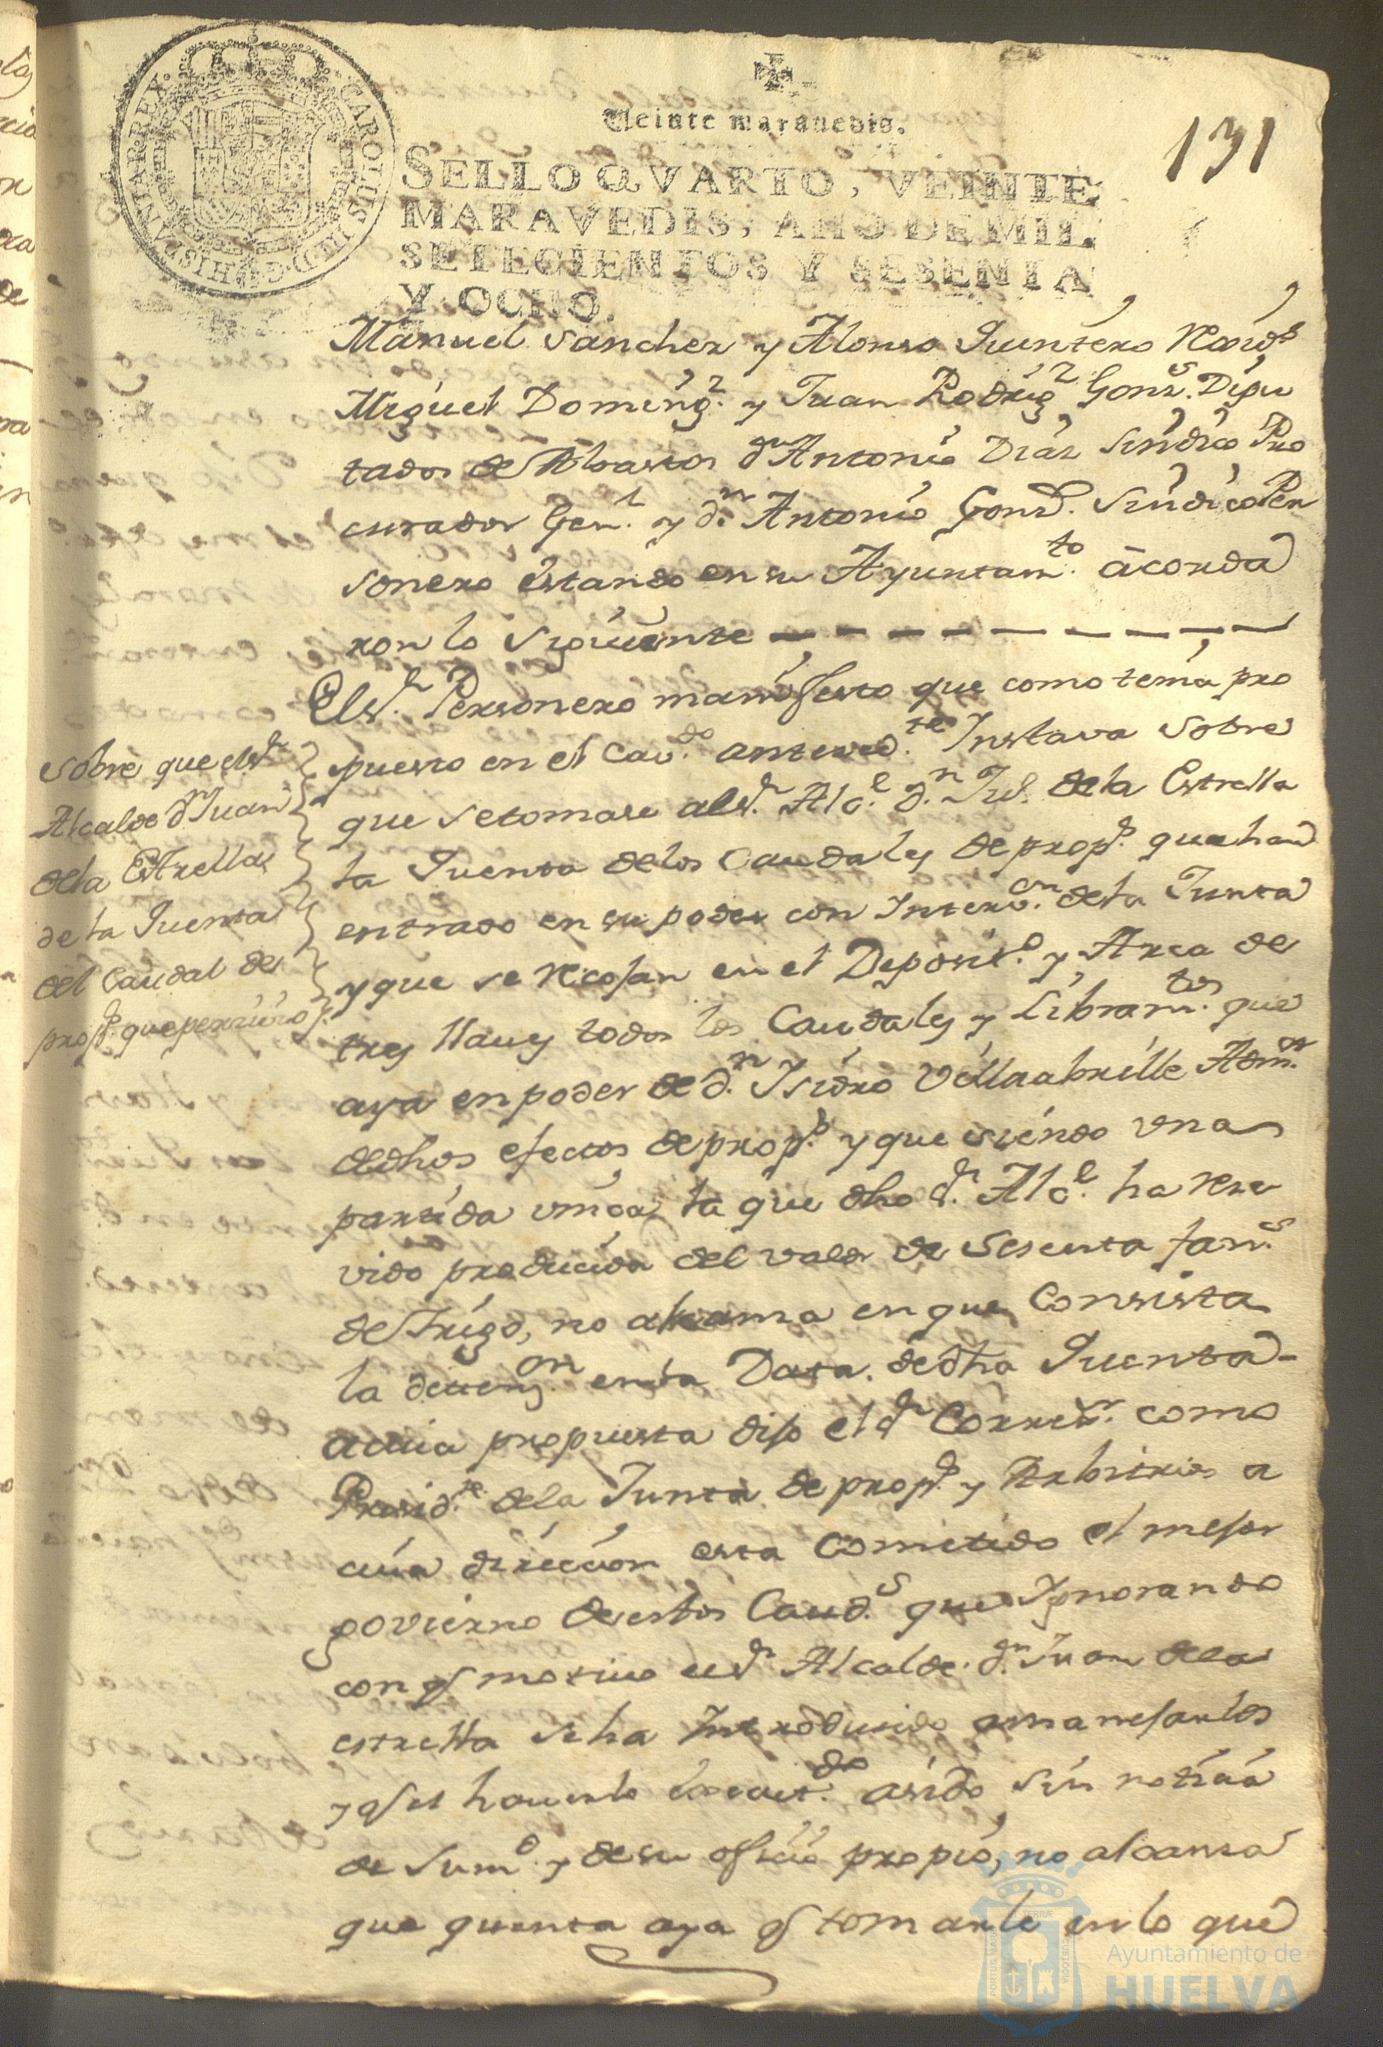 CAROLUS III D.G. HISPANIAR. REX.
Veinte maravedis.
131
SELLO QVARTO, VEINTE
MARAVEDIS, AÑO DE MIL
SETECIENTOS Y SESENTA
Y OCHO.
Manuel Sanchez y Alonso Quintero Rexid.s
Miguel Doming.z y Juan Rodrig.z Gonz.s Dipu
tados de Abastos d.n Antonio Diaz Sindico Pro
curador Gen.l y d.n Antonio Gonz. Sindico Per
sonero estando en su Ayuntam.to acorda
ron lo siguiente
El s.r Personero manifesto que como tenia pro
puesto en el Cav.do anteced.te Instava sobre
que se tomase al s.r Alc.e d.n Ju.n de la Estrella
la Quenta de los Caudales de prop.s que han
entrado en su poder con Interv.on de la Junta
y que se recojan en el Deposit.o y Arca de
tres llaves todos los Caudales y Libram.tos que
aya en poder de d.n Isidro Villaabrille Adm.or
de dhos efectos de prop.s y que siendo una
partida unica la que dho s.r Alc.e ha reze
vido producida del valor de sesenta fan.s
de Trigo, no alcanza en que Consista
la detenz.on en la Data de dha Quenta
a cuia propuesta dijo el s.r Corre.r como
Presid.te de la Junta de prop.s y Arbitrios a
cuia direccion esta Cometido el mejor
govierno de estos Caud.s que Ignorando
con q motivo el s.r Alcalde d.n Juan de la
estrella se ha Introducido a manejarlos
y q el haverlo execut.do a sido sin noticia
de su m.d y de su oficio propio, no alcanza
que quenta aya q tomarle en lo que
sobre que el s.r
Alcalde d.n Juan
de la Estrella
de la Quenta
del Caudal de
prop.s que percivio
Ayuntamiento de
HUELVA